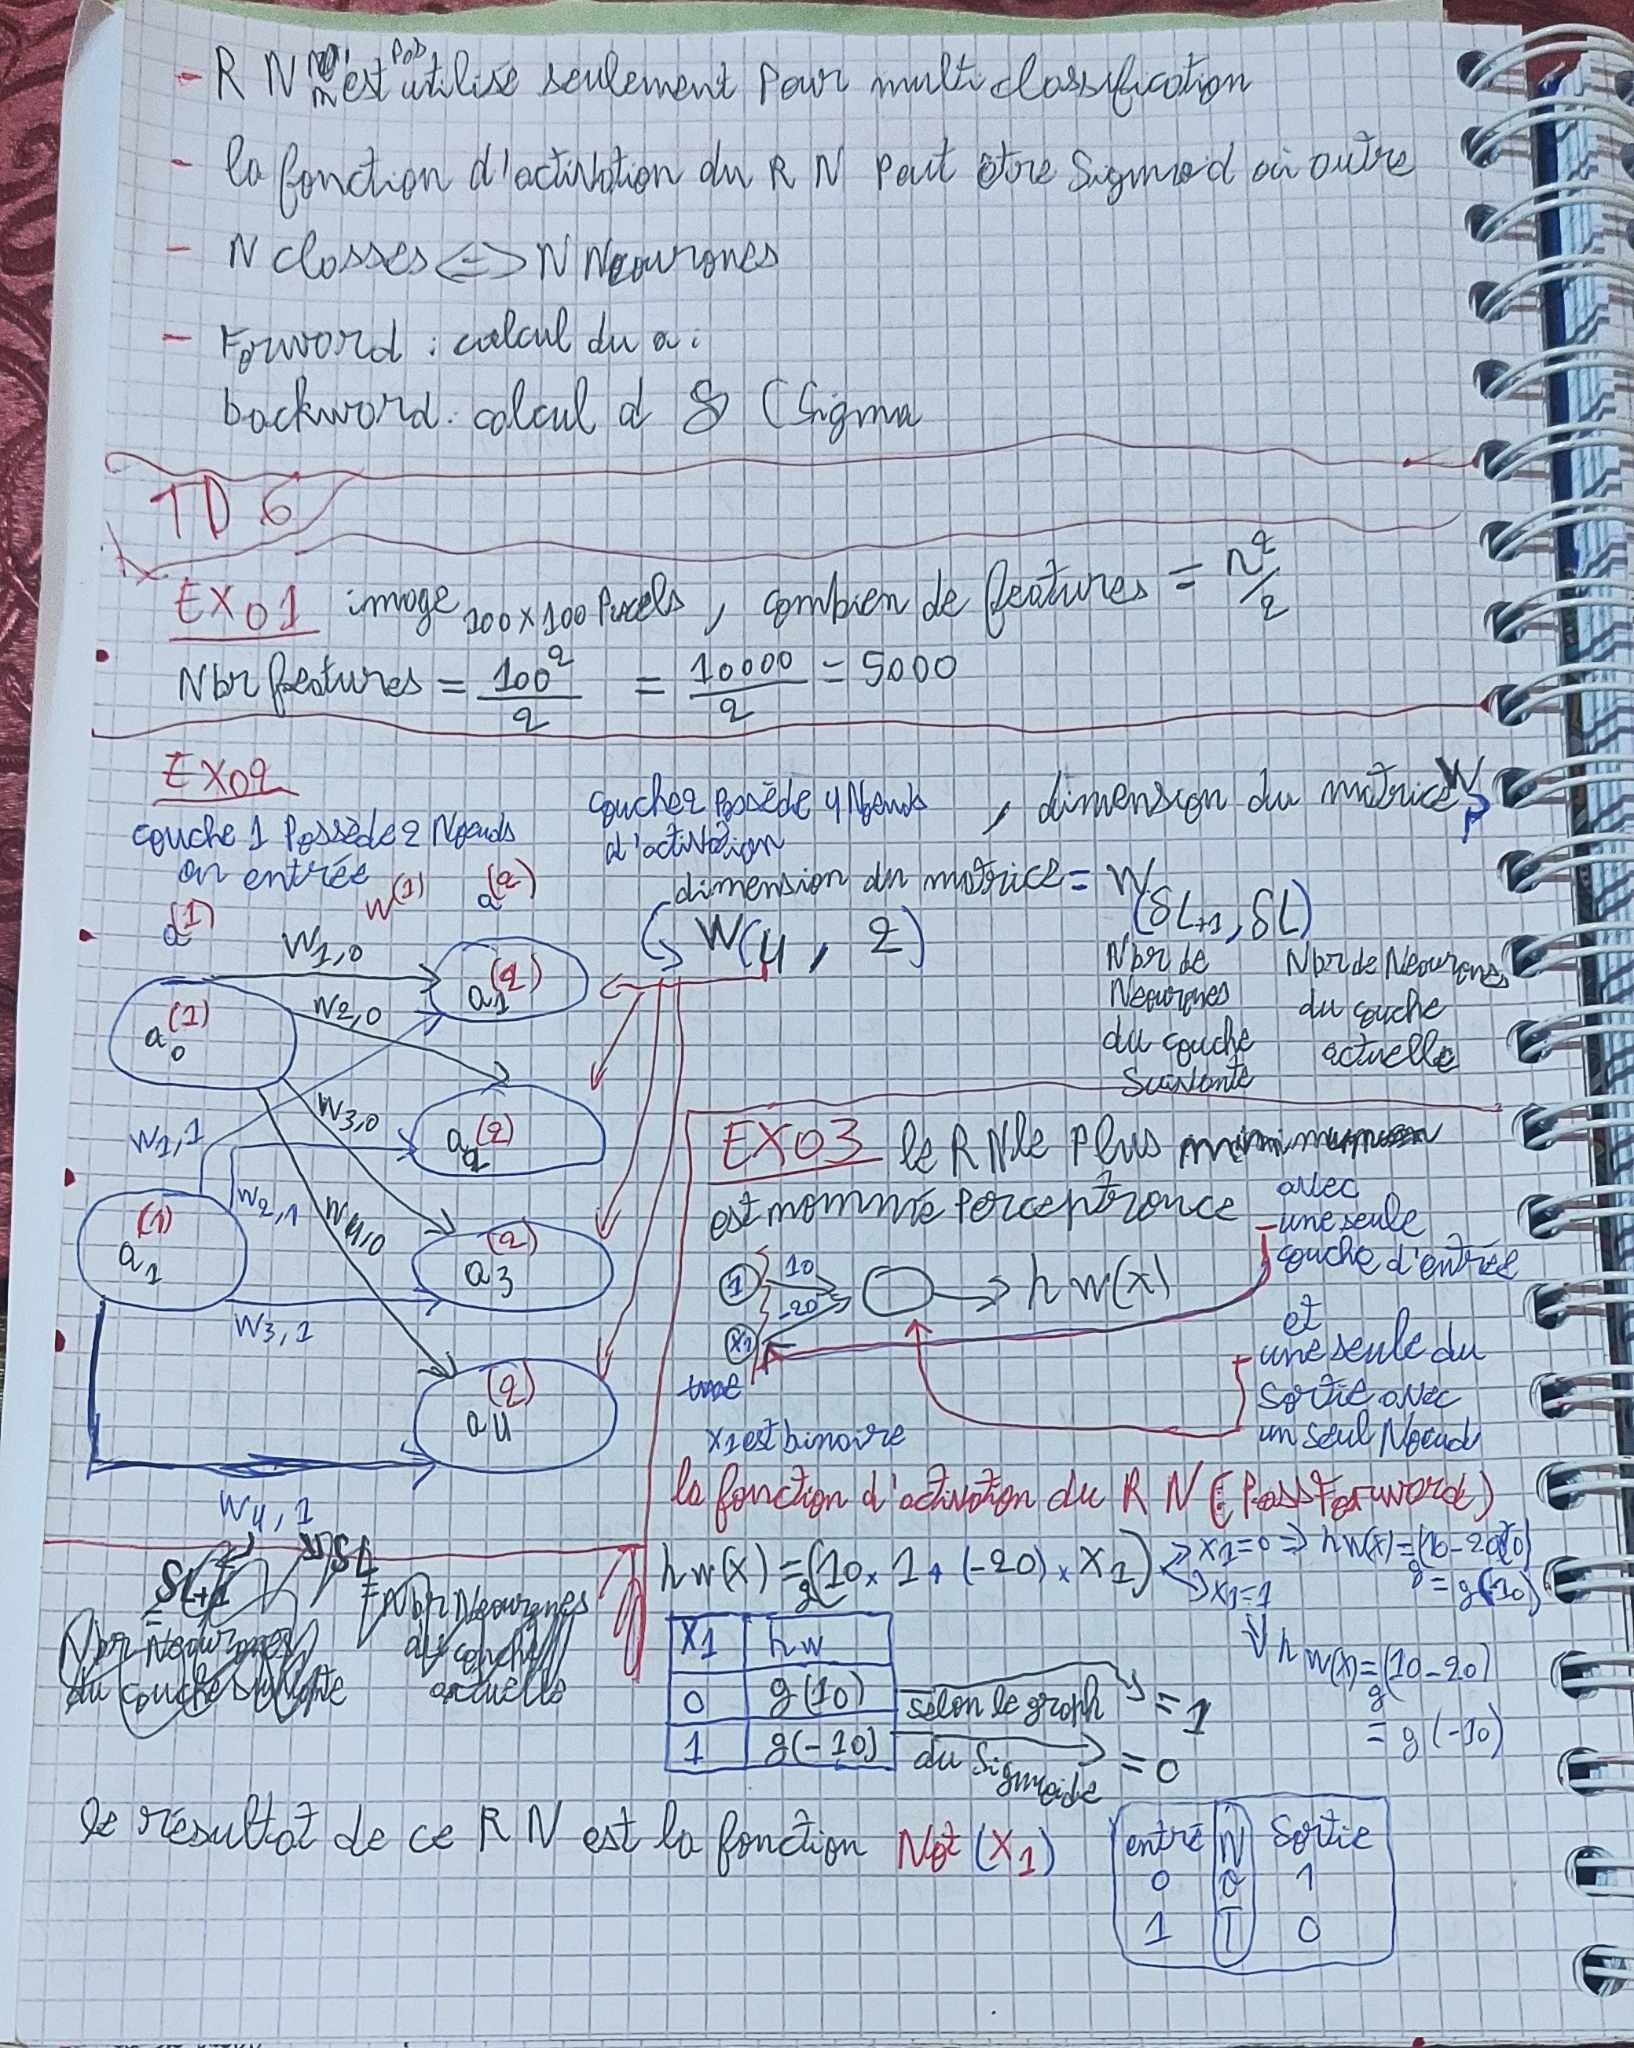 - RN n'est pas utilisé seulement pour multi classification
- la fonction d'activation du RN peut être Sigmoid ou autre
- N classes <=> N Neourones
- Forword : calcul du a i
backword : calcul d δ (Sigma
TD 6
EX01 image 100x100 Pixels, combien de features = n²/2
Nbr features = 100²/2 = 10000/2 = 5000
EX02
couche 1 Possède 2 Noeuds
en entrée
couche 2 Possède 4 Noeuds
d'activation
, dimension du matrice W
dimension du matrice = W(δL+1, δL)
W(4, 2)
Nbr de
Neourones
du couche
suivante
Nbr de Neourones
du couche
actuelle
a(1) W(1) a(2)
W1,0
a1(2)
a0(1)
W2,0
W3,0
a2(2)
W1,1
W2,1
W4,0
a1(1)
a3(2)
W3,1
a4(2)
W4,1
SL+1 SL
= Nbr Neourones
du couche suivante
= Nbr Neourones
du couche
actuelle
EX03 le RN le plus minimum
est nommé Perceptronce
avec
- une seule
couche d'entrée
et
- une seule du
sortie avec
un seul Noeud
1 10
-20
x1
hw(x)
x1 est binaire
la fonction d'activation du RN (Pass Forword)
hw(x) = g(10 x 1 + (-20) x X1)
x1=0 => hw(x) = g(10-20(0))
= g(10)
x1=1
hw(x) = g(10-20)
= g(-10)
X1 hw
0 g(10) selon le graph = 1
1 g(-10) du Sigmoide = 0
le résultat de ce RN est la fonction Not (X1)
entré N Sortie
0 O 1
1 T 0